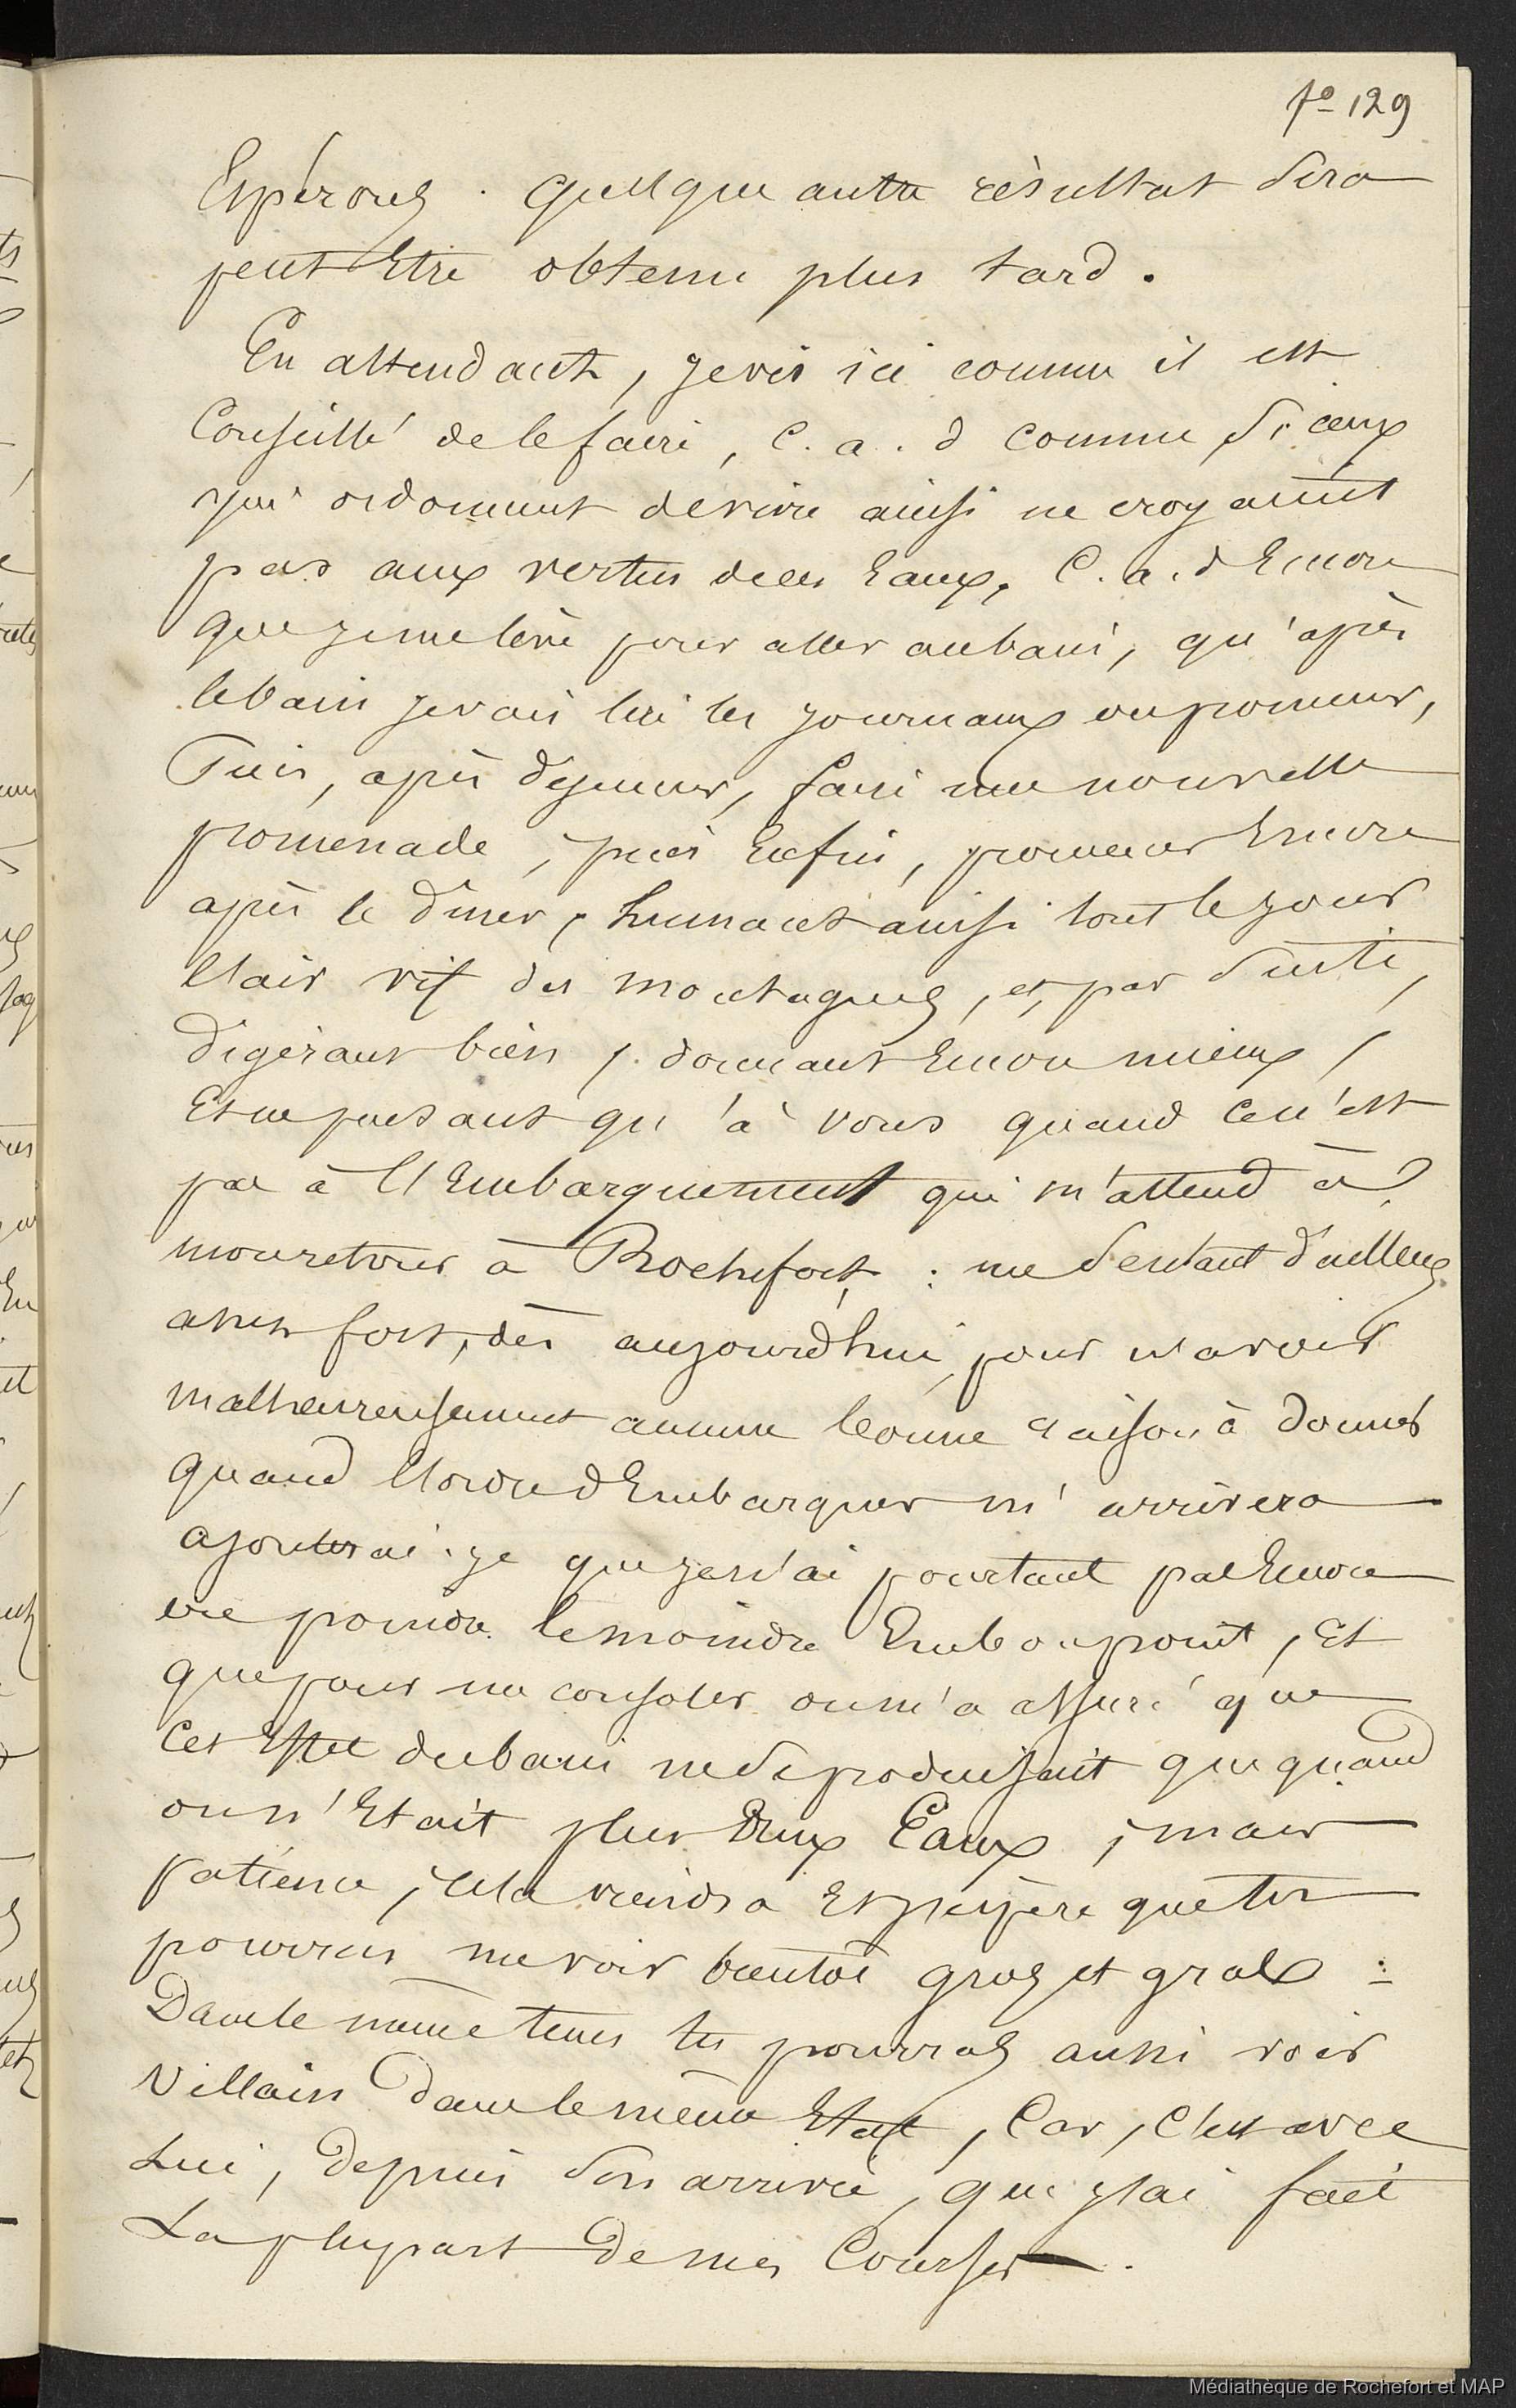 fº 129
Espérons. Quelque autre résultat sera
peut Etre obtenu plus tard.
En attendant, je vis ici comme il est
Conseillé de le faire, C. a. d comme si ceux
qui ordonnent de vivre ainsi ne croyaient
pas aux vertus des Eaux, C. a. d Encore
que je me lève pour aller au bain, qu'après
le bain je vais lire les journaux ou promener,
Puis, après déjeuner, faire une nouvelle
promenade, puis Enfin, promener Encore
après le diner, humant ainsi tout le jour
l'air vif des montagnes, et, par suite,
digérant bien, dormant Encore mieux,
Et ne pensant qu'à vous quand ce n'est
pas à l'Embarquement qui m'attend à
mon retour à Rochefort, : me sentant d'ailleurs
assez fort, dès aujourd'hui, pour n'avoir
malheureusement aucune bonne raison à donner
quand l'ordre d'Embarquer m'arrivera
ajouterai-je que je n'ai pourtant pas Encore
vu poindre le moindre Embonpoint, Et
que pour me consoler on m'a assuré que
cet Effet du bain ne se produisait que quand
on n'Etait plus Aux Eaux ; mais
patience, cela viendra Et j'espère que tu
pourras me voir bientôt gros et gras :
Dans le même tems tu pourras aussi voir
Villain dans le même Etat, Car, c'est avec
Lui, depuis son arrivée, que j'ai fait
La plupart de mes Courses.
Médiathèque de Rochefort et MAP